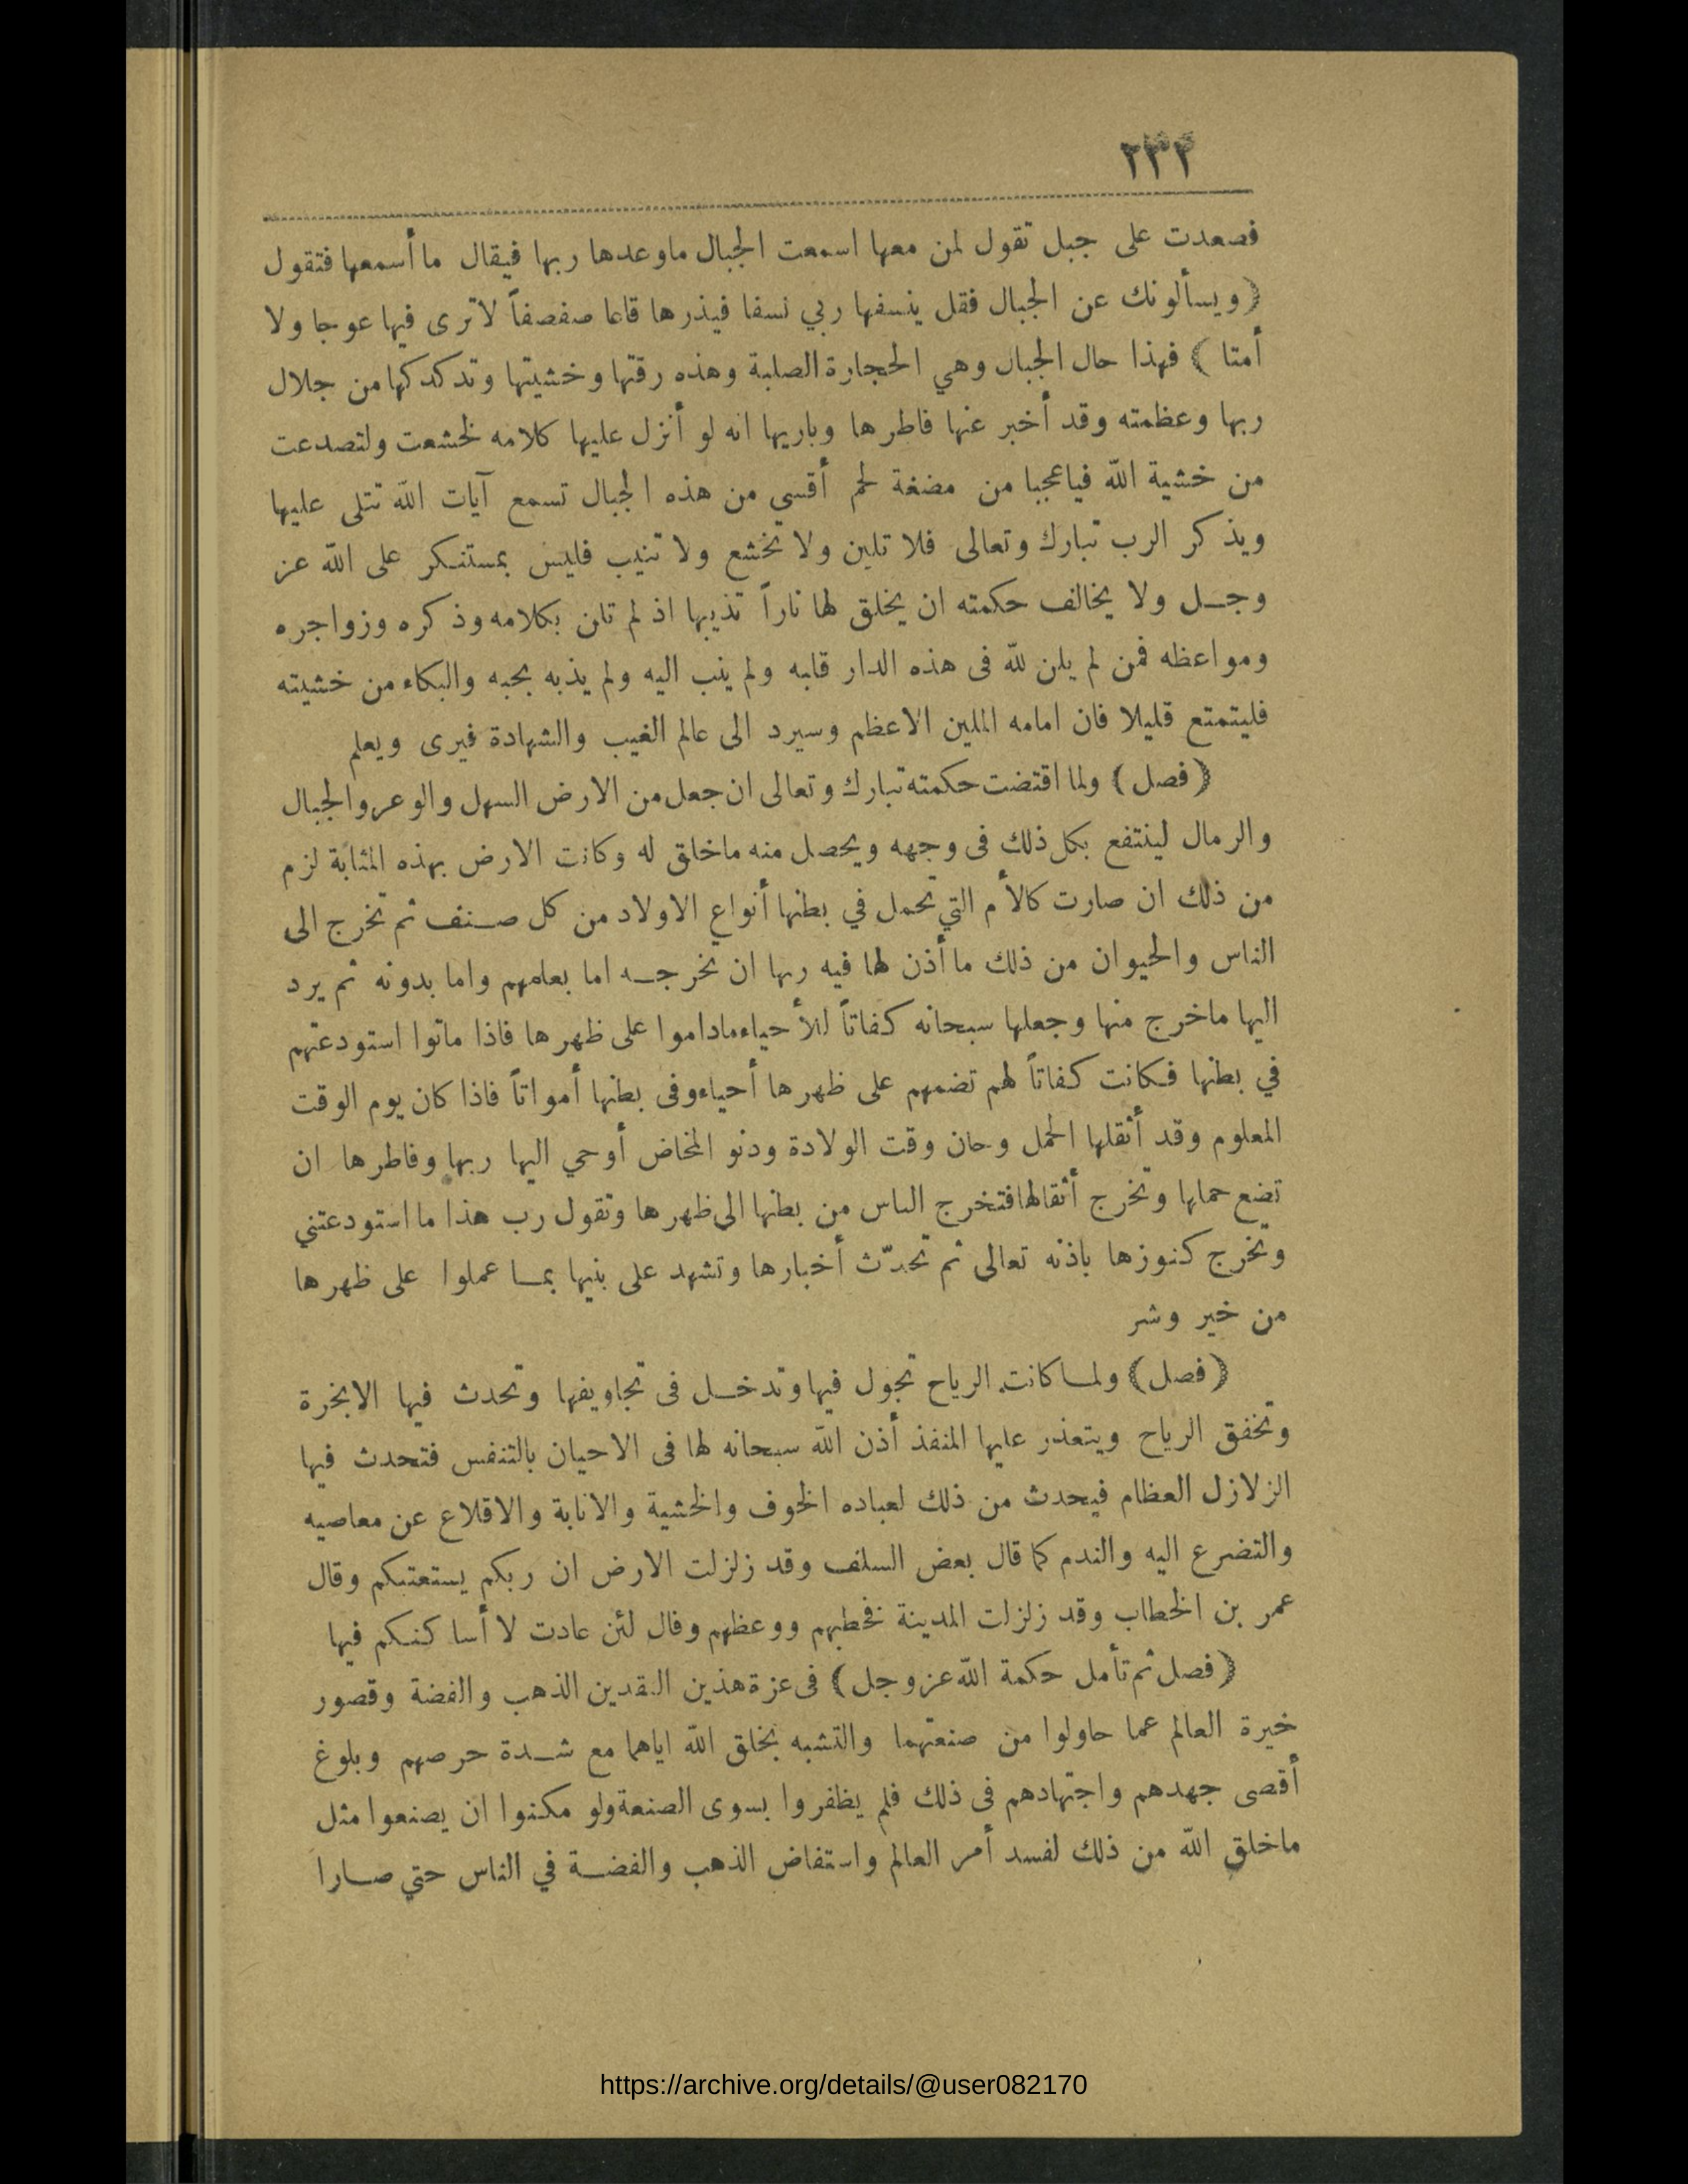 ٢٣٢
فصعدت على جبل تقول لمن معها اسمعت الجبال ماوعدها ربها فيقال ما أسمعها فتقول
﴿ ويسألونك عن الجبال فقل ينسفها ربي نسفا فيذرها قاعا صفصفاً لاترى فيها عوجا ولا
أمتا ﴾ فهذا حال الجبال وهي الحجارة الصلبة وهذه رقتها وخشيتها وتدكدكها من جلال
ربها وعظمته وقد أخبر عنها فاطرها وباريها انه لو أنزل عليها كلامه لخشعت ولتصدعت
من خشية الله فياعجبا من مضغة لحم أقسى من هذه الجبال تسمع آيات الله تتلى عليها
ويذكر الرب تبارك وتعالى فلا تلين ولا تخشع ولا تنيب فليس بمستنكر على الله عز
وجل ولا يخالف حكمته ان يخلق لها ناراً تذيبها اذ لم تلن بكلامه وذكره وزواجره
ومواعظه فمن لم يلن لله فى هذه الدار قلبه ولم ينب اليه ولم يذبه بحبه والبكاء من خشيته
فليتمتع قليلا فان امامه الملين الاعظم وسيرد الى عالم الغيب والشهادة فيرى ويعلم
﴿ فصل ﴾ ولما اقتضت حكمته تبارك وتعالى ان جعل من الارض السهل والوعر والجبال
والرمال لينتفع بكل ذلك فى وجهه ويحصل منه ماخلق له وكانت الارض بهذه المثابة لزم
من ذلك ان صارت كالأم التي تحمل في بطنها أنواع الاولاد من كل صنف ثم تخرج الى
الناس والحيوان من ذلك ما أذن لها فيه ربها ان تخرجه اما بعلمهم واما بدونه ثم يرد
اليها ماخرج منها وجعلها سبحانه كفاتاً للأحياء ماداموا على ظهرها فاذا ماتوا استودعتهم
في بطنها فكانت كفاتاً لهم تضمهم على ظهرها أحياء وفى بطنها أمواتاً فاذا كان يوم الوقت
المعلوم وقد أثقلها الحمل وحان وقت الولادة ودنو المخاض أوحي اليها ربها وفاطرها ان
تضع حملها وتخرج أثقالها فتخرج الناس من بطنها الى ظهرها وتقول رب هذا ما استودعتني
وتخرج كنوزها باذنه تعالى ثم تحدّث أخبارها وتشهد على بنيها بما عملوا على ظهرها
من خير وشر
﴿ فصل ﴾ ولما كانت الرياح تجول فيها وتدخل فى تجاويفها وتحدث فيها الابخرة
وتخفق الرياح ويتعذر عليها المنفذ أذن الله سبحانه لها فى الاحيان بالتنفس فتحدث فيها
الزلازل العظام فيحدث من ذلك لعباده الخوف والخشية والانابة والاقلاع عن معاصيه
والتضرع اليه والندم كما قال بعض السلف وقد زلزلت الارض ان ربكم يستعتبكم وقال
عمر بن الخطاب وقد زلزلت المدينة فخطبهم ووعظهم وقال لئن عادت لا أساكنكم فيها
﴿ فصل ثم تأمل حكمة الله عز وجل ﴾ فى عزة هذين النقدين الذهب والفضة وقصور
خيرة العالم عما حاولوا من صنعتهما والتشبه بخلق الله اياهما مع شدة حرصهم وبلوغ
أقصى جهدهم واجتهادهم فى ذلك فلم يظفروا بسوى الصنعة ولو مكنوا ان يصنعوا مثل
ماخلق الله من ذلك لفسد أمر العالم واستفاض الذهب والفضة في الناس حتي صارا
https://archive.org/details/@user082170